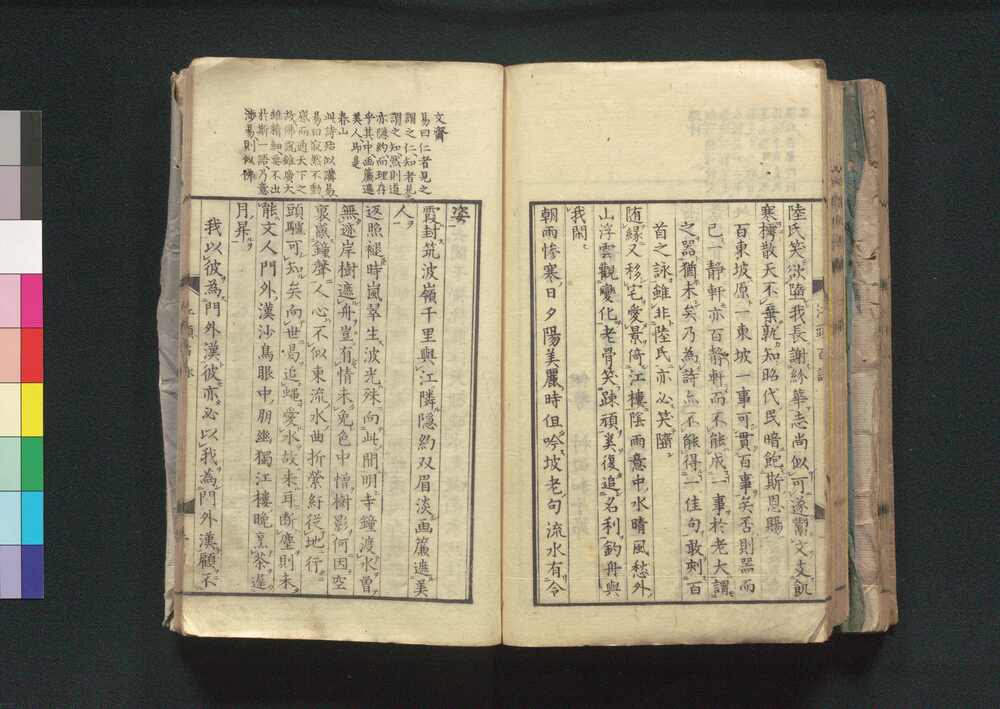 陸氏笑欲墮我長謝紛華志尚似可遂鬻文支飢
寒擣散天不棄孰知昭代民暗鮑斯恩賜
百東坡原一東坡一事可貫百事矣否則噐而
已一静軒亦百静軒而不能成一事於老大謂
之噐猶未矣乃為詩亦不能得一佳句敢刺百
首之詠雖非陸氏亦必笑墮
随縁又移宅愛景倚江樓陰雨意中水晴風愁外
山浮雲觀變化老骨笑踈頑美復追名利釣舟與
我閑
朝雨惨寒日夕陽美麗時但吟坡老句流水有令
姿
霞封筑波嶺千里與江隣隠約双眉淡画簾遮美
人
返照褪時嵐翠生波光殊向此間明寺鐘渡水曽
無迹岸樹遮舟豈有情未免色中憎樹影何因空
裏厭鐘聲人心不似東流水曲折縈紆従地行
頭驢可知矣向世曷追蠅愛水故来耳断塵則未
能文人門外漢沙鳥眼中朋幽獨江樓晩烹茶遅
月昇
我以彼為門外漢彼亦必以我為門外漢顧不
文齋
易曰仁者見之
謂之仁知者見
謂之知然則道
亦隠約而理存
乎其中画簾遮
美人乃是
春山
此詩殆似講易
易曰寂然不動
感而通天下之
故佛説雖廣大
維精細要不出
於斯一語乃意
渉易則似佛